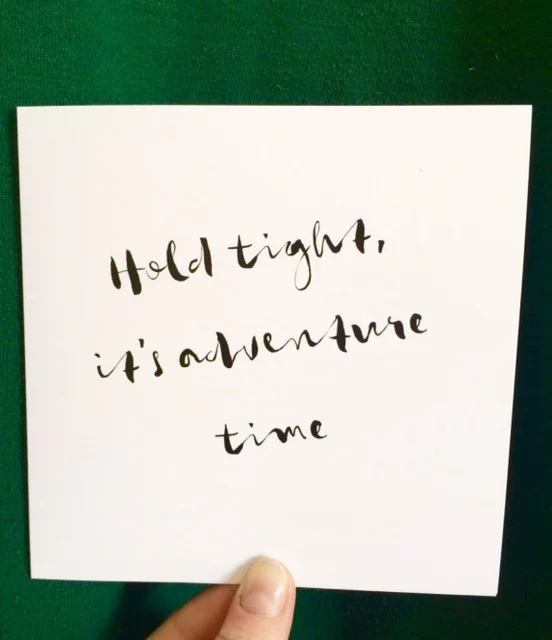 Hold tight,
it's adventure
time